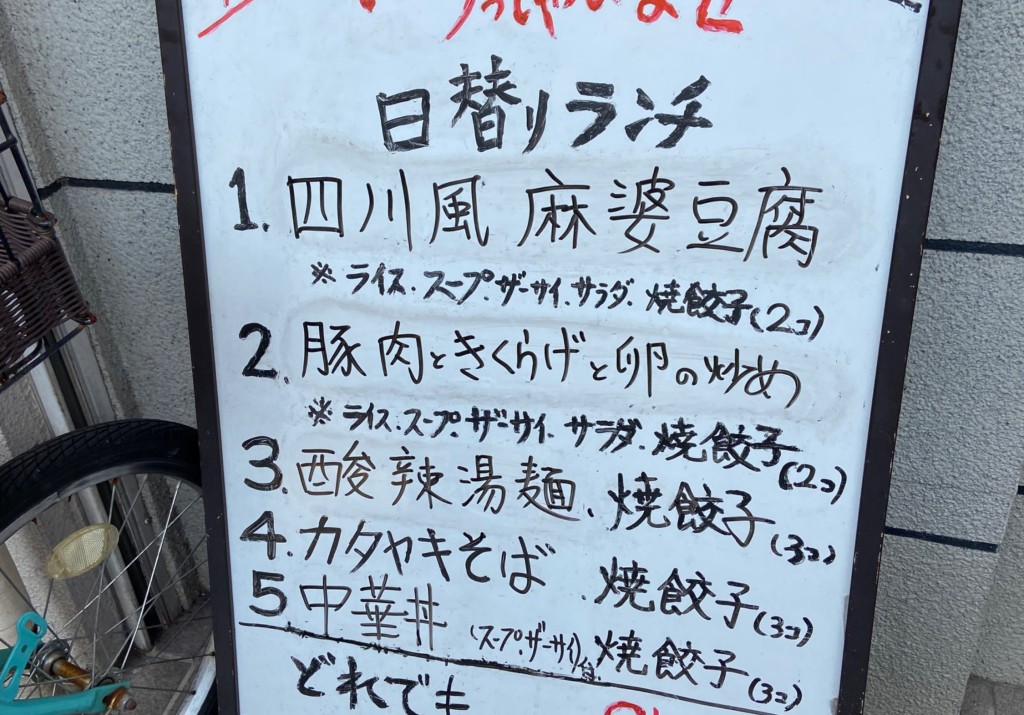 いらっしゃいませ
日替りランチ
1. 四川風 麻婆豆腐
※ ライス.スープ.ザーサイ.サラダ.焼餃子(2コ)
2. 豚肉ときくらげと卵の炒め
※ ライス.スープ.ザーサイ.サラダ.焼餃子(2コ)
3. 酸辣湯麺、焼餃子(3コ)
4. カタヤキそば 焼餃子(3コ)
5 中華丼 (スープ.ザーサイ)付 焼餃子(3コ)
どれでも